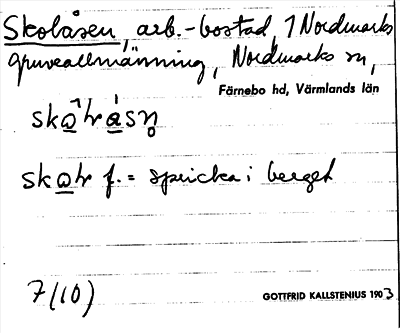 Skolåsen, arb.-bostad, 7 Nordmarks
gruveallmänning, Nordmarks sn,
Färnebo hd, Värmlands län
sko
sko f. = spricka i berget
7(10)
GOTTFRID KALLSTENIUS 1903